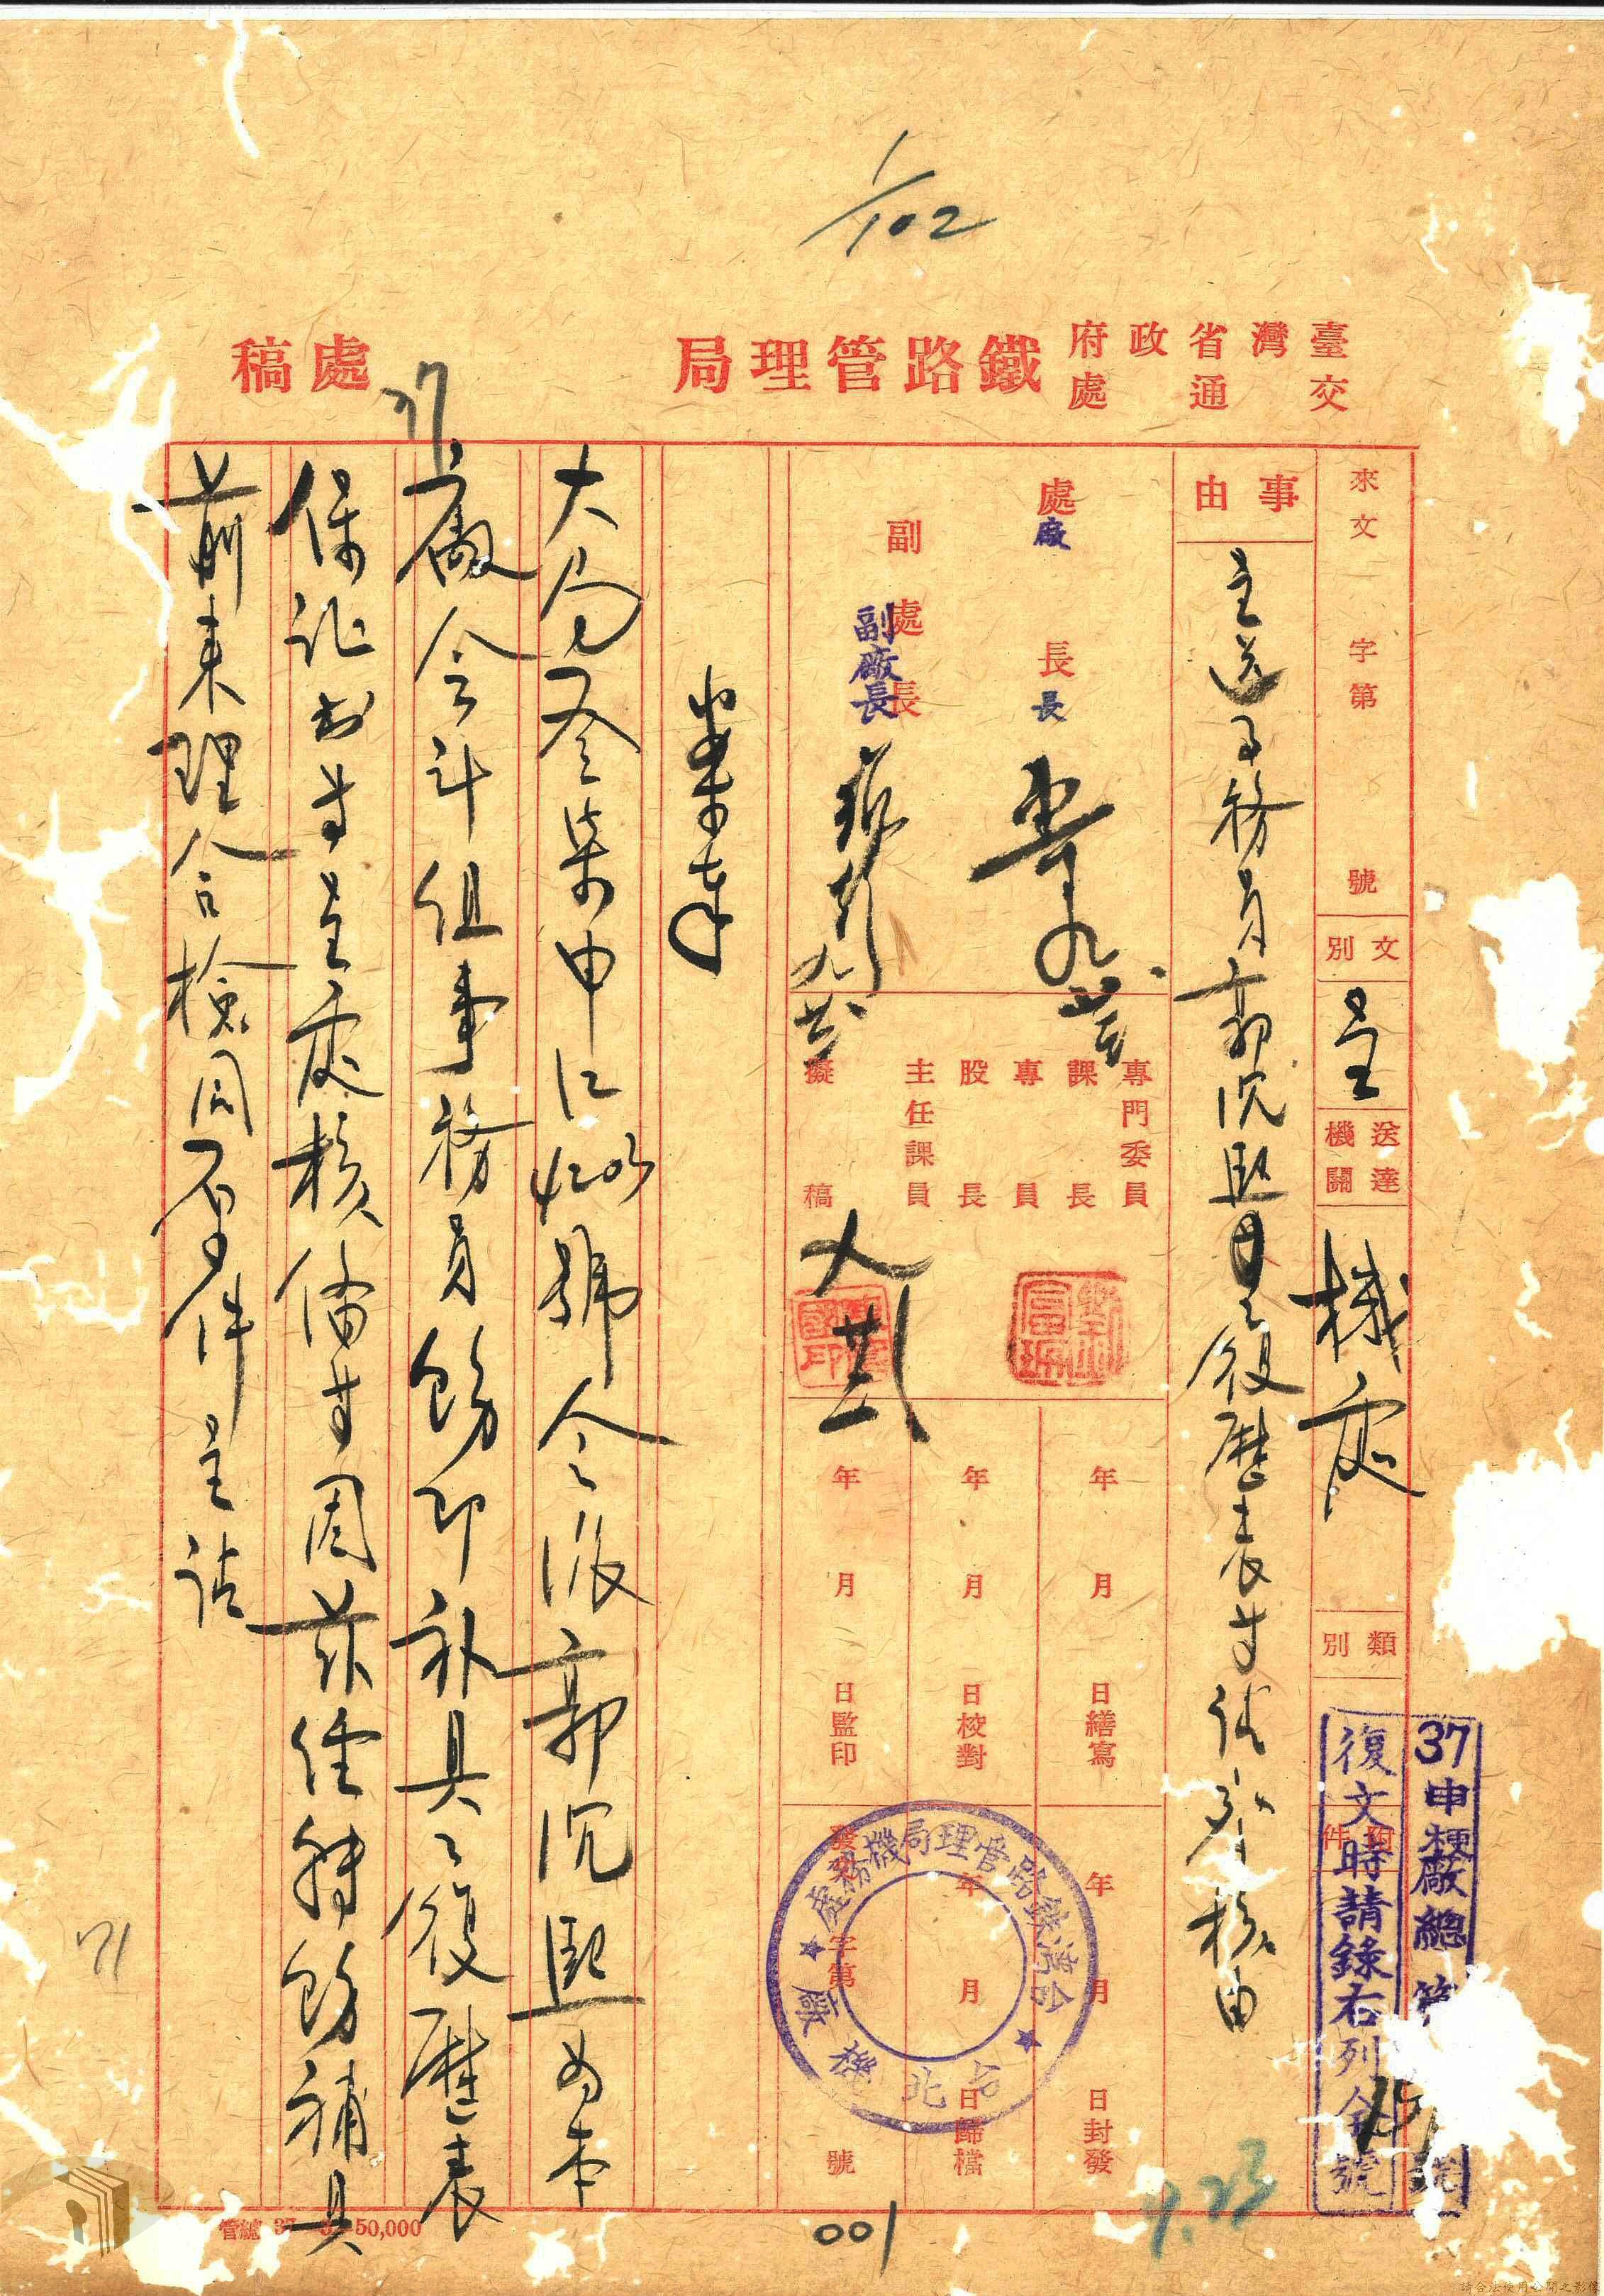 1/102
臺灣省政府
交通處
鐵路管理局
處稿
來文 字第 號
文別
呈
送達機關
機處
類別
附件
37申機廠總第 號
復文時請錄右列全號
事由
呈送事務員郭沉熙 履歷表等請 核由
處長
廠長
副處長
副廠長
專門委員
課長
專員
股長
主任課員
擬稿
年 月 日繕寫
年 月 日校對
年 月 日監印
年 月 日封發
年 月 日歸檔
發文 字第 號
台灣鐵路管理局機務處
台北機廠
案奉
大局 申 號令派郭沉熙為本
廠会計組事務員飭即補具履歷表
保証書等呈處核備等因茲據 飭補具
前來理合檢同原件呈請
37
71
9.23
001
管總 37 50,000